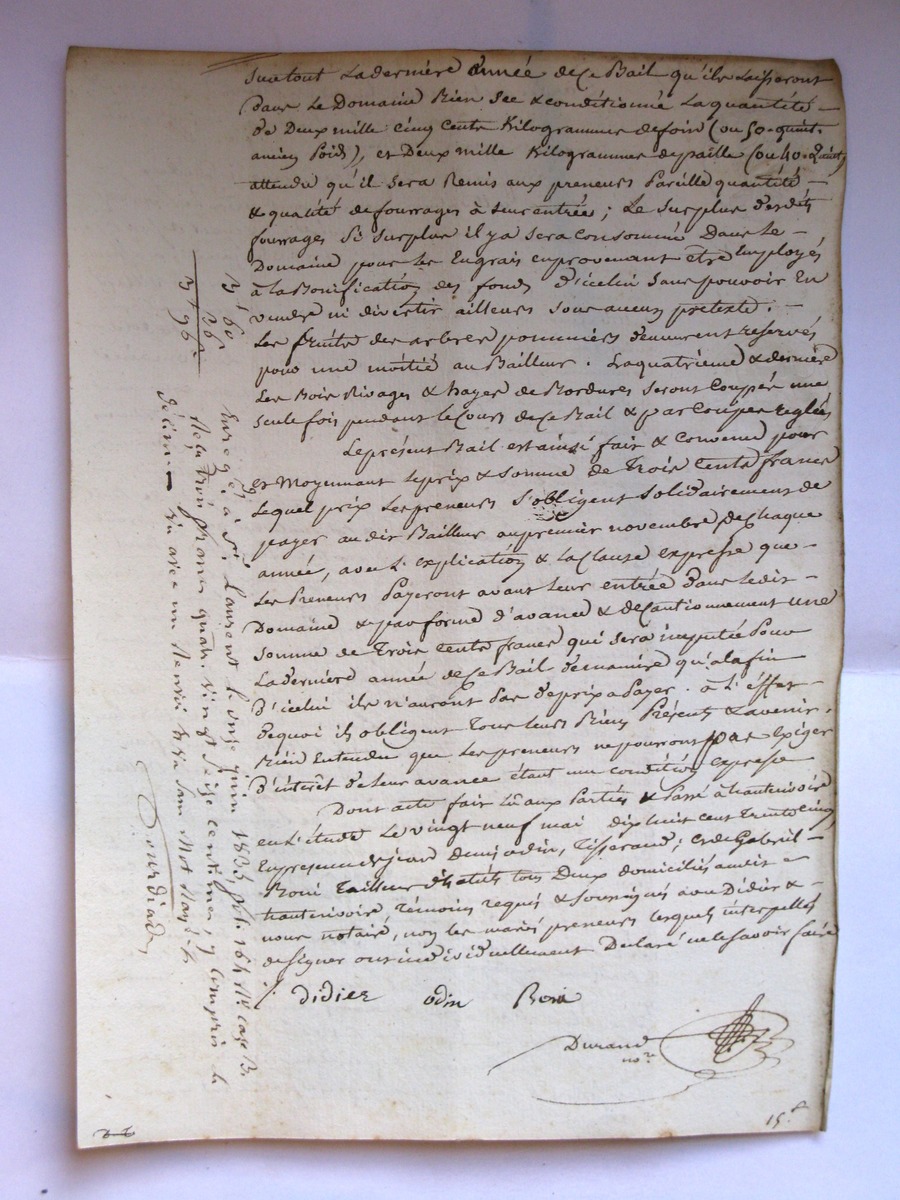 surtout La derniére année de Ce Bail qu'ils Laisseront
dans Le Domaine Bien Sec & conditionné La quantité
de Deux mille cinq Cents Kilogrammes de foin (ou 50 quint.
ancien Poids), et Deux mille Kilogrammes de paille (ou 40. Quint)
attendu qu'il sera Remis aux preneurs Pareille quantité
& qualité de fourrages à leur entrée; Le Surplus desdits
fourrages Si surplus il y a sera Consommé Dans Le
Domaine pour Les Engrais en provenant être Employés
à La Bonification des fonds d'icelui Sans pouvoir En
vendre ni divertir ailleurs Sous aucun pretexte.
Les fruits des arbres pommiers demeurent reservés
pour une moitié au Bailleur. La quatrieme & derniére
Les Bois Rivages & hayes de Bordures Seront Coupés une
seule fois pendant le Cours de Ce Bail & par Coupes reglées
Le présent Bail est ainsi fait & Convenu pour
Et Moyennant le prix & Somme de Trois Cents francs
Lequel prix Les preneurs S'obligent Solidairement de
payer au dit Bailleur au premier novembre de Chaque
année, avec L'explication & La Clause expresse que
Les Preneurs Payeront avant Leur entrée dans Ledit
Domaine & par forme d'avance & de Cautionnement une
Somme de Trois Cents francs qui sera imputée Pour
La derniere année de Ce Bail de manière qu'a la fin
d'icelui ils n'auront Pas de prix a Payer. à L'éffet
de quoi ils obligent Tous Leurs Biens Présents & avenir.
Bien Entendu que Les preneurs ne pourront pas Exiger
d'interêt de Leur avance étant une condition expresse
Dont acte fait Lû aux Parties & Passé à hauterivoire
en L'étude Le vingt neuf mai dix huit cent trente cinq
En presence de jean Odin, Tisserand; et de Gabriel
Roni Tailleur d'habits tous Deux domiciliés audit
hauterivoire, Témoins requis & Soussignés avec Didier &
nous notaire, non les mariés preneurs lesquels interpellés
de signer ont individuellement Declaré ne le Savoir faire
Didier odin Roni
Durand
nore
15.f
Enregé à St Laurent le onze juin 1835 fol. 164 Vo. Case 3.
Reçu trois francs quatre vingt seize centimes, y compris le
décime